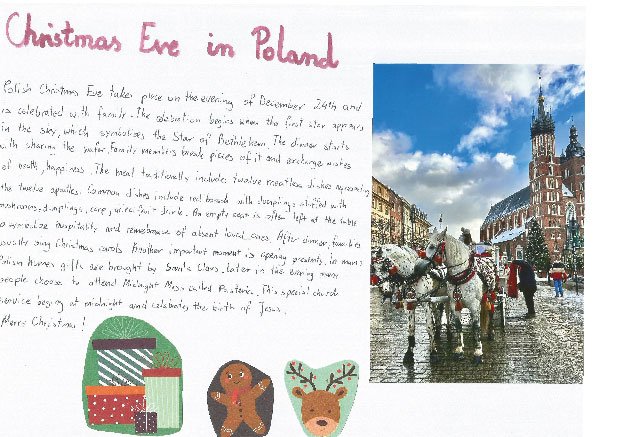 Christmas Eve in Poland
Polish Christmas Eve takes place on the evening of December 24th and
is celebrated with family. The celebration begins when the first star appears
in the sky, which symbolizes the Star of Bethlehem. The dinner starts
with sharing the wafer. Family members break pieces of it and exchange wishes
of health, happiness. The meal traditionally includes twelve meatless dishes representing
the twelve apostles. Common dishes include red borsch with dumplings stuffed with
mushrooms, dumplings, carp, dried fruit drink. An empty seat is often left at the table
to symbolize hospitality and remembrance of absent loved ones. After dinner, families
usually sing Christmas carols. Another important moment is opening presents, in many
Polish homes gifts are brought by Santa Claus. Later in the evening many
people choose to attend Midnight Mass called Pasterka. This special church
service begins at midnight and celebrates the birth of Jesus.
Merry Christmas!